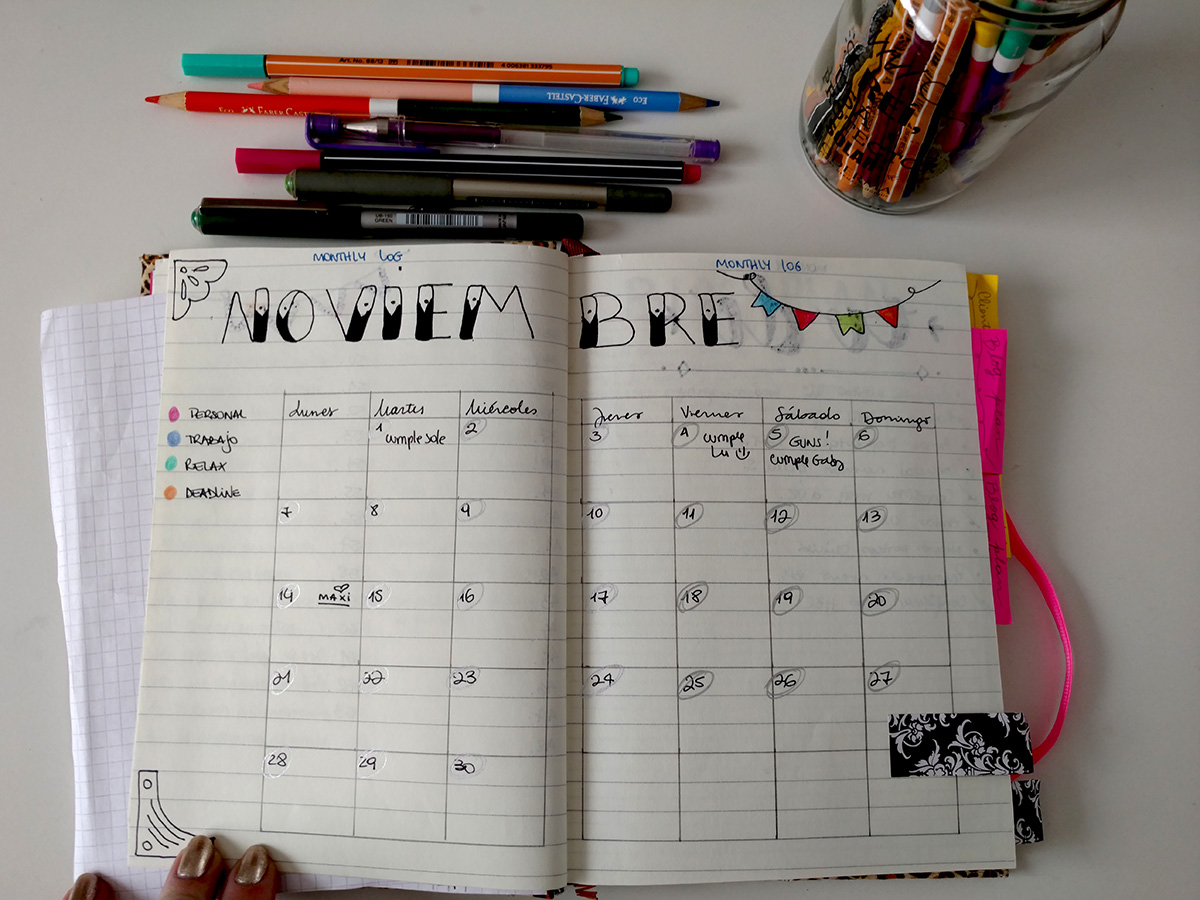 Art. No. 88/13
4 006381 333795
ECO FABER-CASTELL
ECO FABER-CASTELL
UB-150
GREEN
MONTHLY LOG
MONTHLY LOG
NOVIEMBRE
PERSONAL
TRABAJO
RELAX
DEADLINE
Lunes Martes Miércoles Jueves Viernes Sábado Domingo
1 cumple Sole 2 3 4 cumple Lu 5 GUNS! 6
cumple Gaby
7 8 9 10 11 12 13
14 MAXI 15 16 17 18 19 20
21 22 23 24 25 26 27
28 29 30
Blog plan